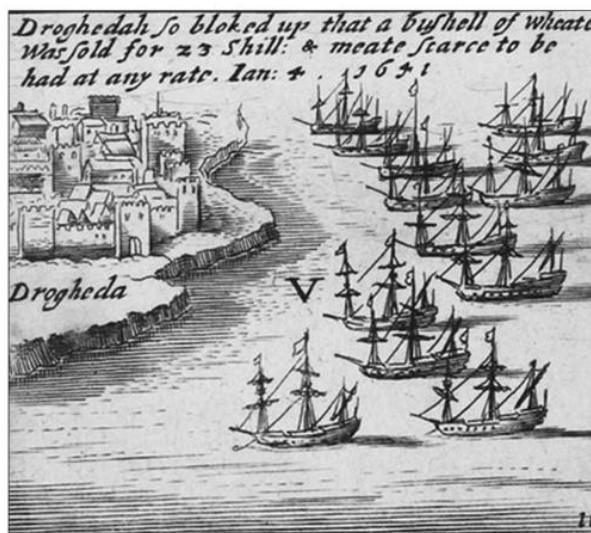 Droghedah so bloked up that a bushell of wheate
Was sold for 23 Shill: & meate scarce to be
had at any rate. Ian: 4 . 1641
Drogheda
V